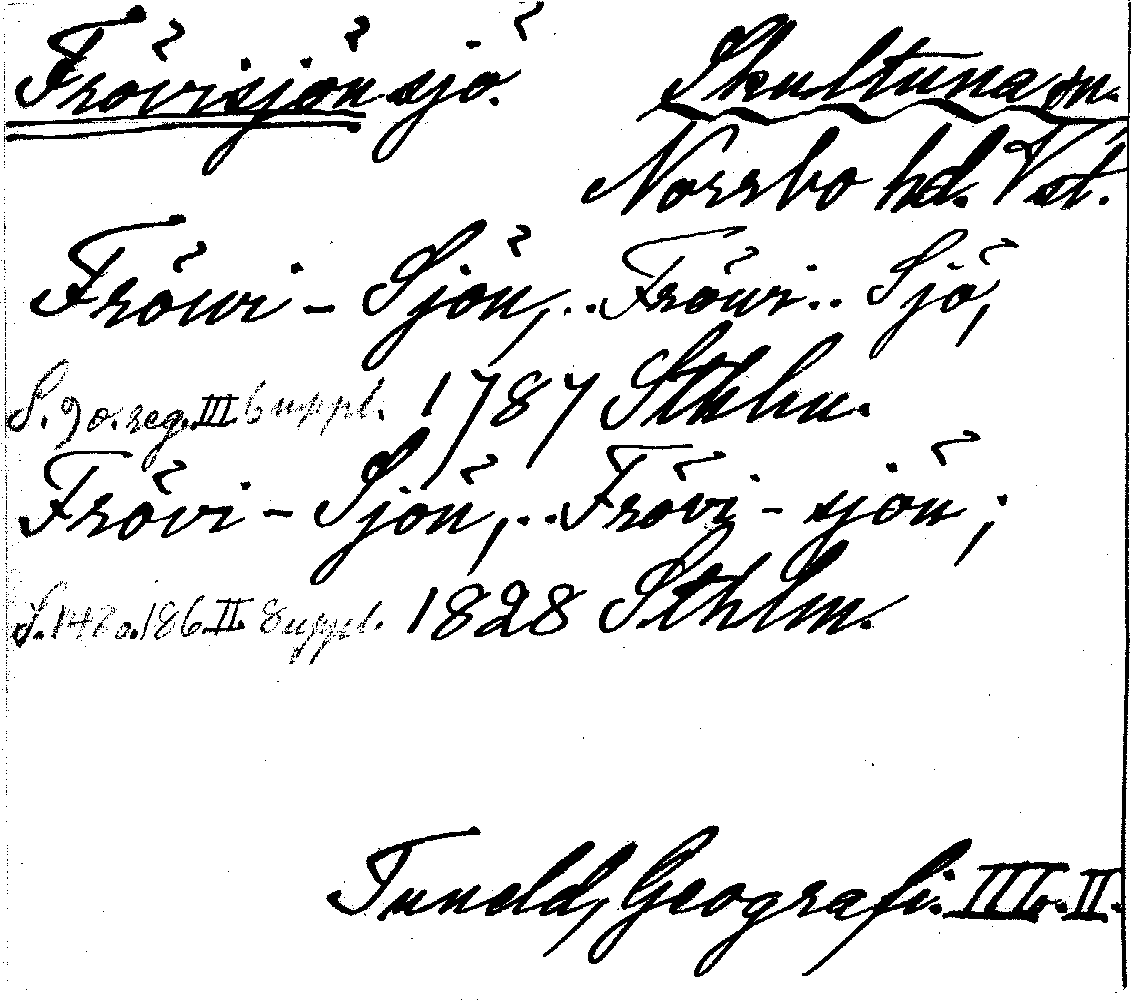 Frövisjön sjö. Skultuna sn.
Norrbo hd. Vstl.
Fröwi - Sjön, .. Fröwi .. Sjö,
S. 90. reg. III b suppl. 1787 Sthlm.
Frövi - Sjön, .. Frövi - sjön;
S. 147 o. 186. II Suppl. 1828 Sthlm.
Tuneld, Geografi. III b. II.